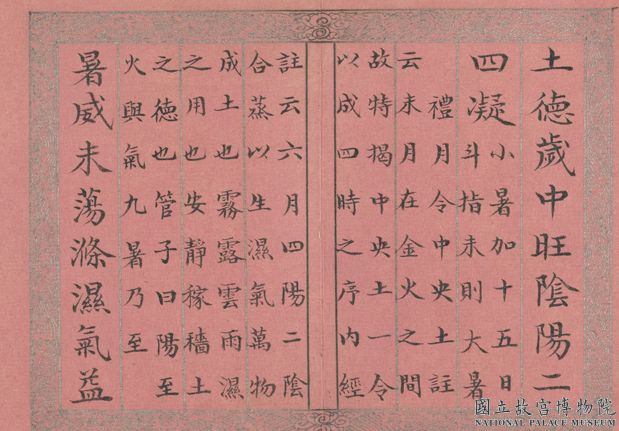 土德歲中旺陰陽二
四凝
小暑加十五日
斗指未則大暑
禮月令中央土註
云未月在金火之間
故特揭中央土一令
以成四時之序内經
註云六月四陽二陰
合蒸以生濕氣萬物
成土也霧露雲雨濕
之用也安靜稼穡土
之德也管子曰陽至
火與氣九暑乃至
暑威未蕩滌濕氣益
國立故宮博物院
NATIONAL PALACE MUSEUM